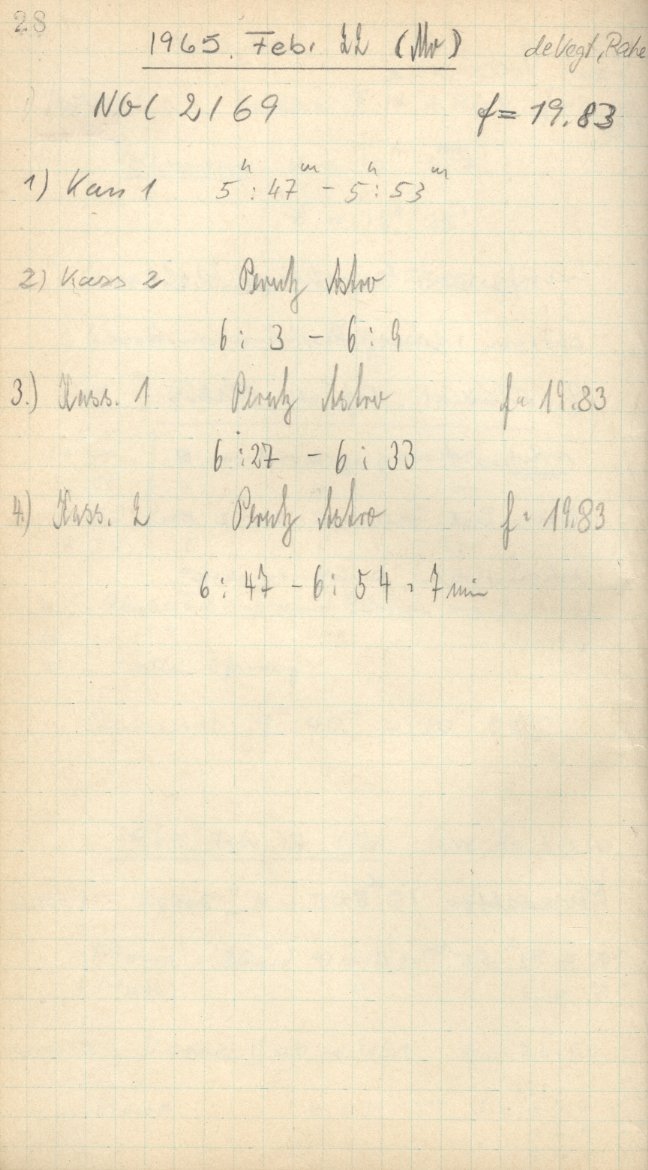 28
1965. Feb. 22 (Mo) de Vegt, Rahe
NGC 2169 f = 19.83
1) Kass 1 5h : 47m - 5h : 53m
2) Kass 2 Perutz Astro
6 : 3 - 6 : 9
3.) Kass. 1 Perutz Astro f = 19.83
6 : 27 - 6 : 33
4.) Kass. 2 Perutz Astro f = 19.83
6 : 47 - 6 : 54 = 7 min